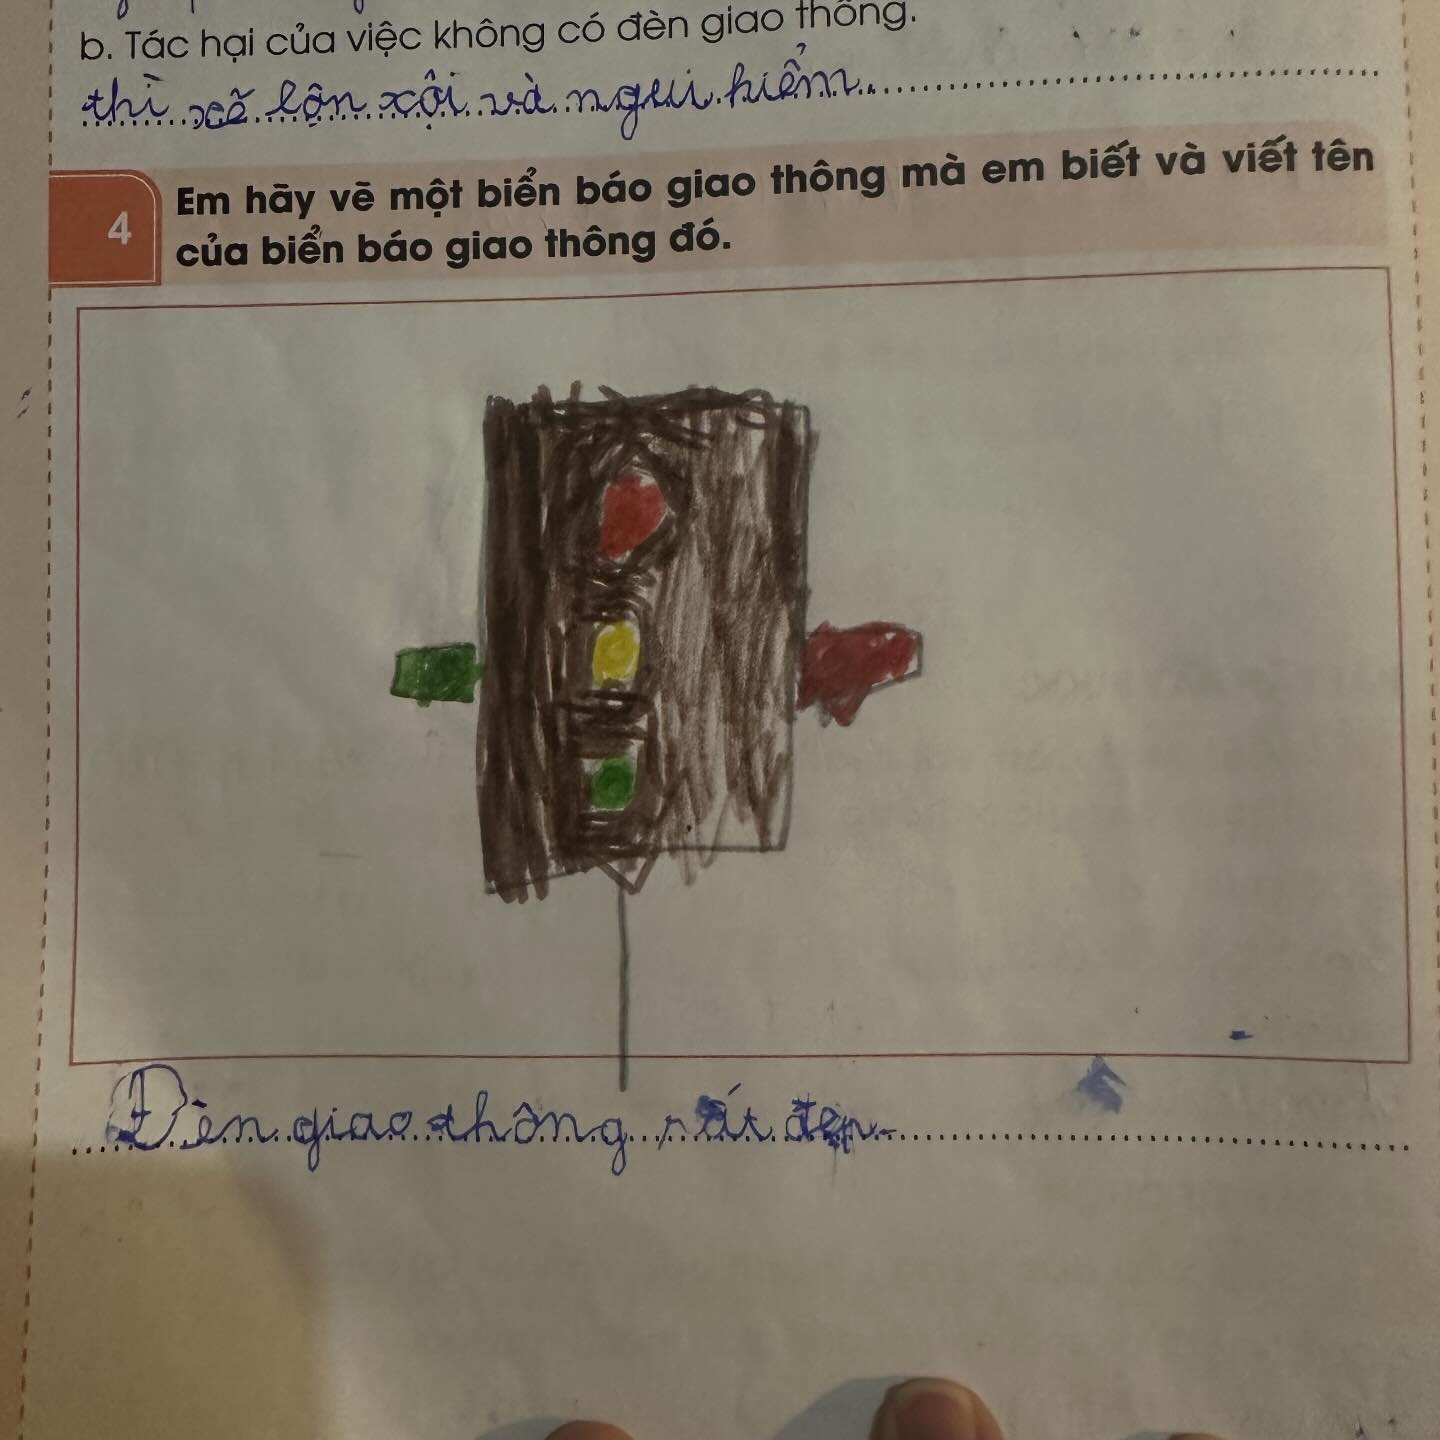 b. Tác hại của việc không có đèn giao thông.
thì sẽ lộn xội và ngui hiểm.
4
Em hãy vẽ một biển báo giao thông mà em biết và viết tên
của biển báo giao thông đó.
Đèn giao thông rất đẹp.